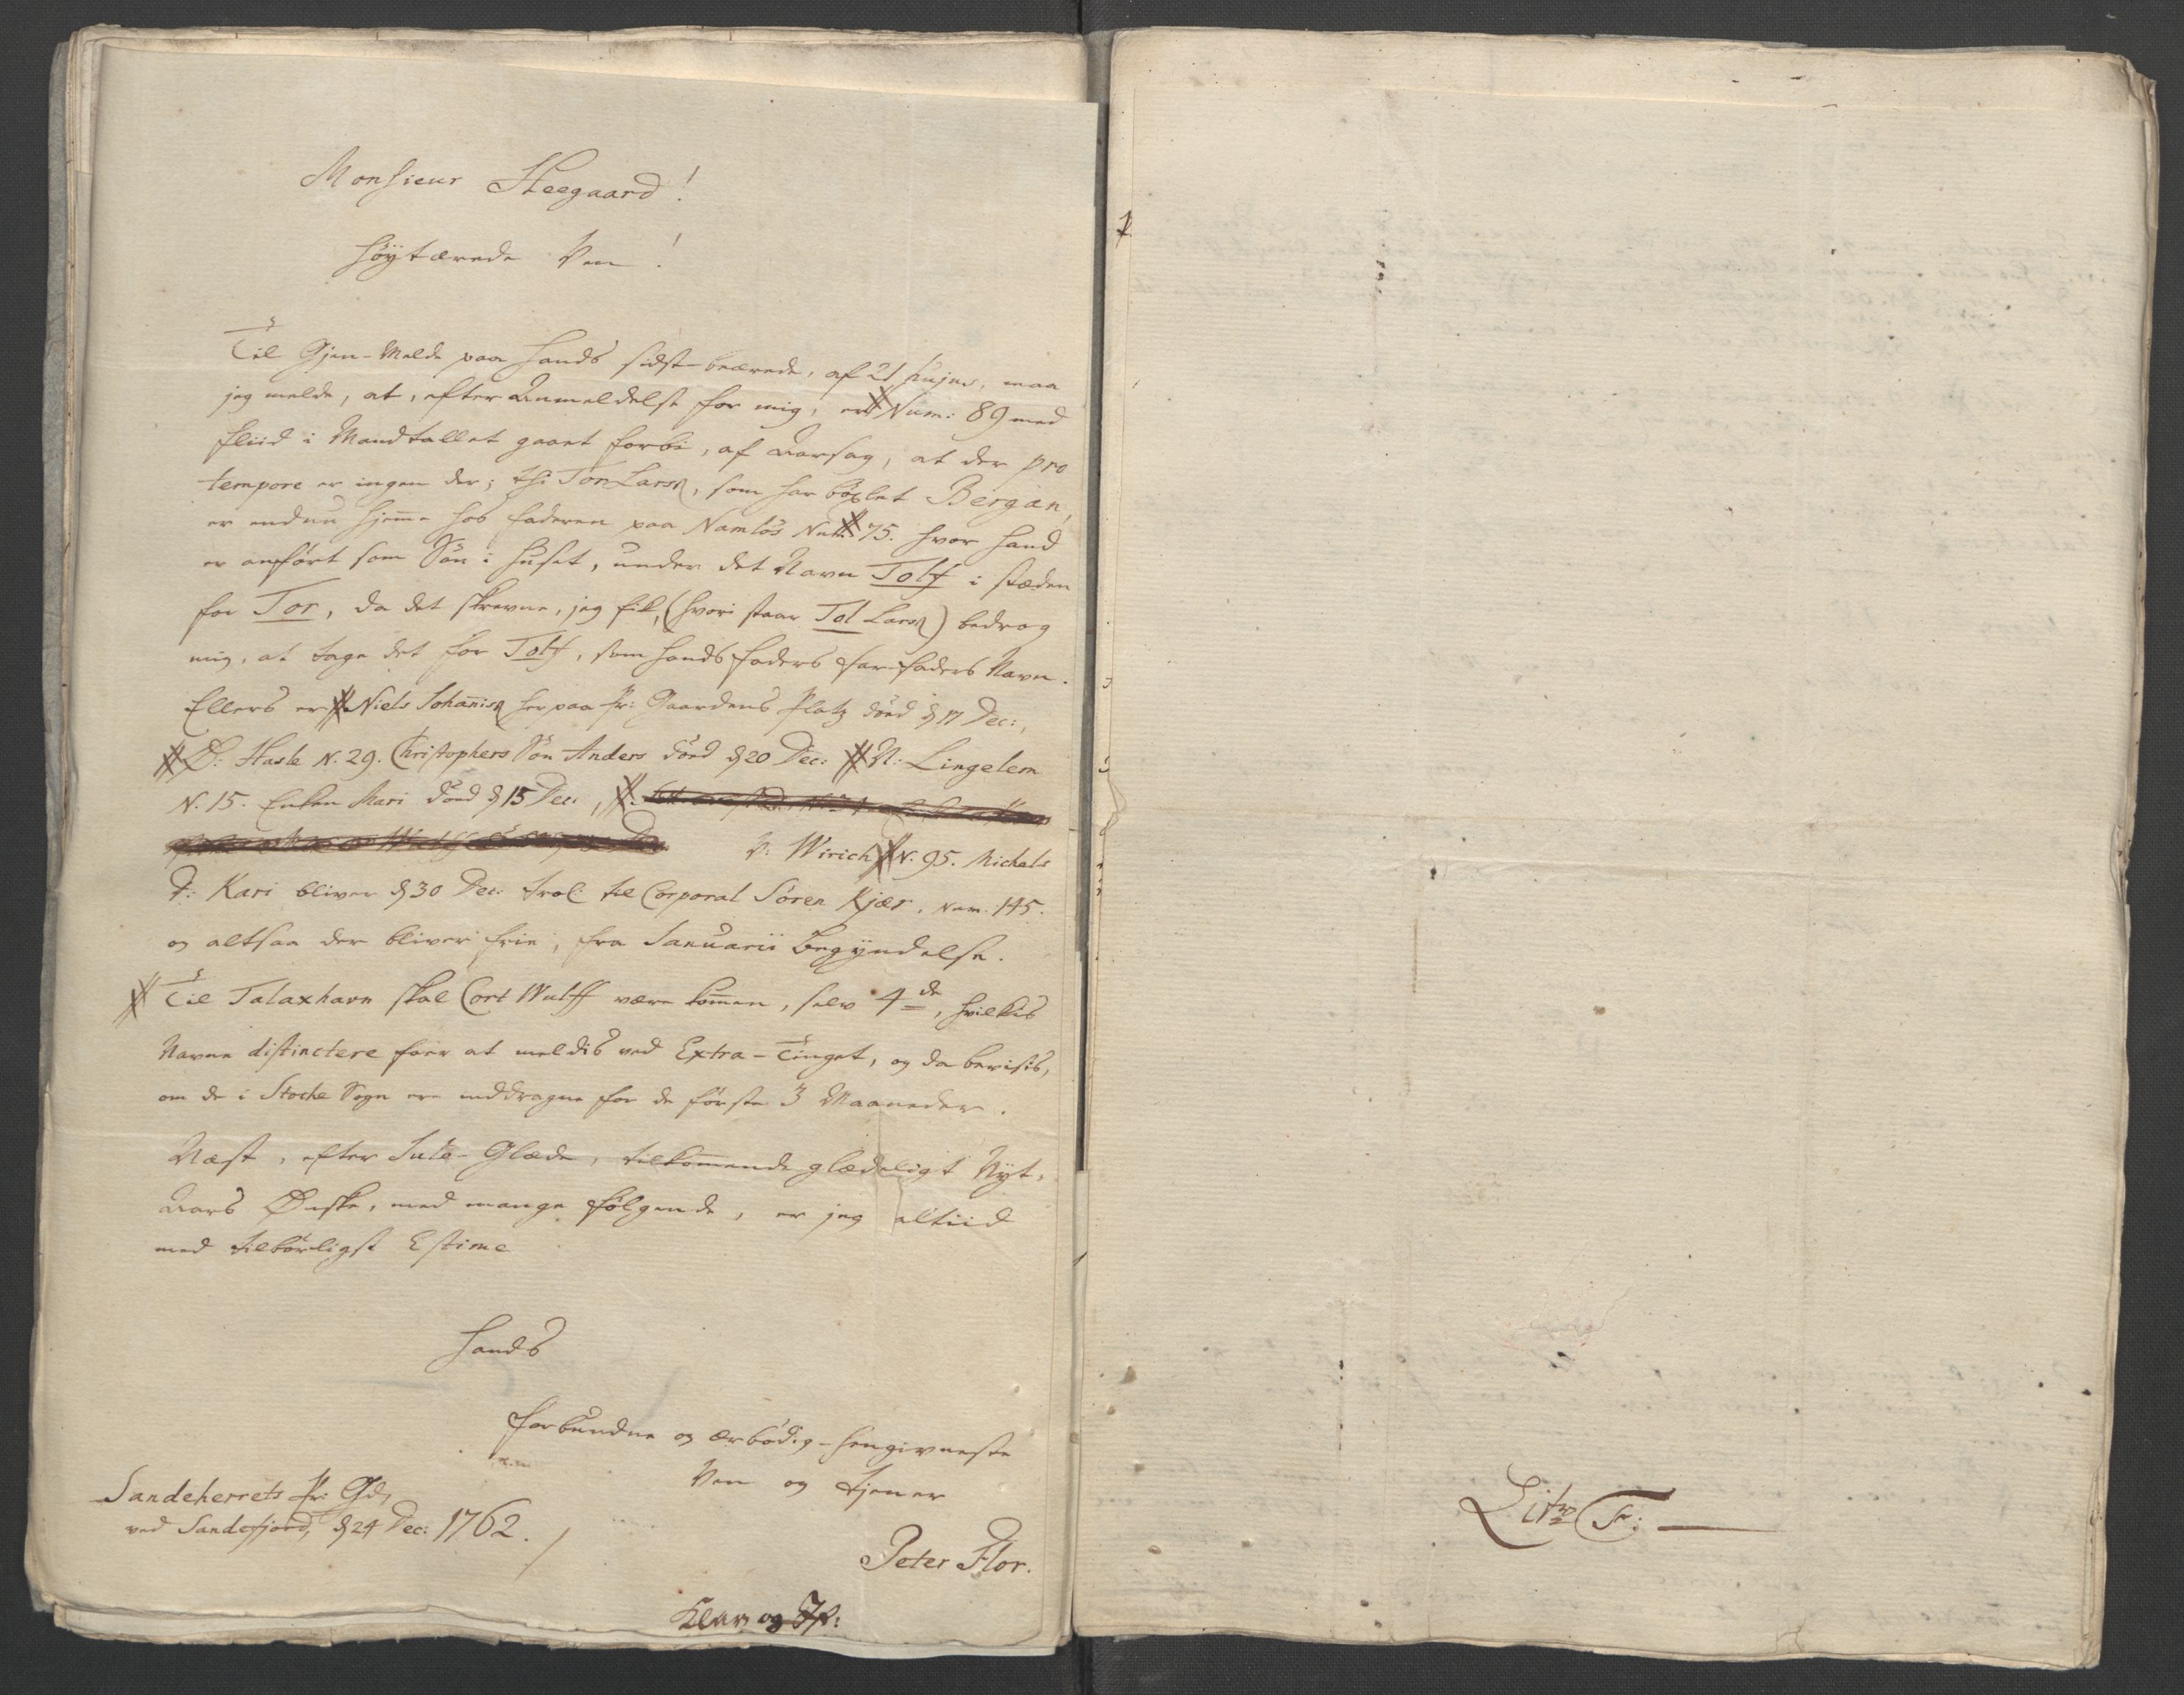 Monsieur Heegaard!
Høytærede Ven!
Til Gjen-Melde paa Hands sidst-beærede, af 21 hujus, maa
jeg melde, at, efter Anmeldelse for mig, er Num: 89 med
Fliid i Mandtallet gaaet forbi, af Aarsag, at der pro
tempore er ingen der; thi Tor Larsn, som har böxlet Bergan,
er endnu hjeme hos Faderen paa Namløs Num 75. hvor hand
er anført som Søn i Huset, under det Navn Tolf i stæden
for Tor, da det skrevne, jeg fik, (hvori staar Tol Larsn) bedrog
mig, at tage det for Tolf, som hands Faders Far-Faders Navn.
Ellers er Niels Johanisn her paa Pr: Gaardens Platz død d 17 Dec:,
Ø: Hasle N. 29. Christophers Søn Anders død d 20 Dec: N: Lingelem
N. 15. Enken Mari død d 15 Dec:,
V: Wirich N. 95. Michels
D: Kari bliver d 30 Dec: trol: til Corporal Søren Kjær, Num. 145.
og altsaa der bliver frie, fra Januarii Begyndelse.
Til Talaxhavn skal Cort Wulff være komen, selv 4de, hvilkis
Navne distinctere faaer at meldis ved Extra-Tinget, og da bevisis,
om de i Stoche Sogn ere inddragne for de første 3 Maaneder.
Næst, efter Jule-Glæde, tilkomende glædeligt Nyt-
Aars Ønske, med mange følgende, er jeg altiid
med tilbørligst Estime
Hands
forbundne og ærbødig-hengivneste
Ven og Tjener
Sandeherrets Pr: Gd,
ved Sandefjord, d 24 Dec: 1762.
Peter Flor.
Litr F: